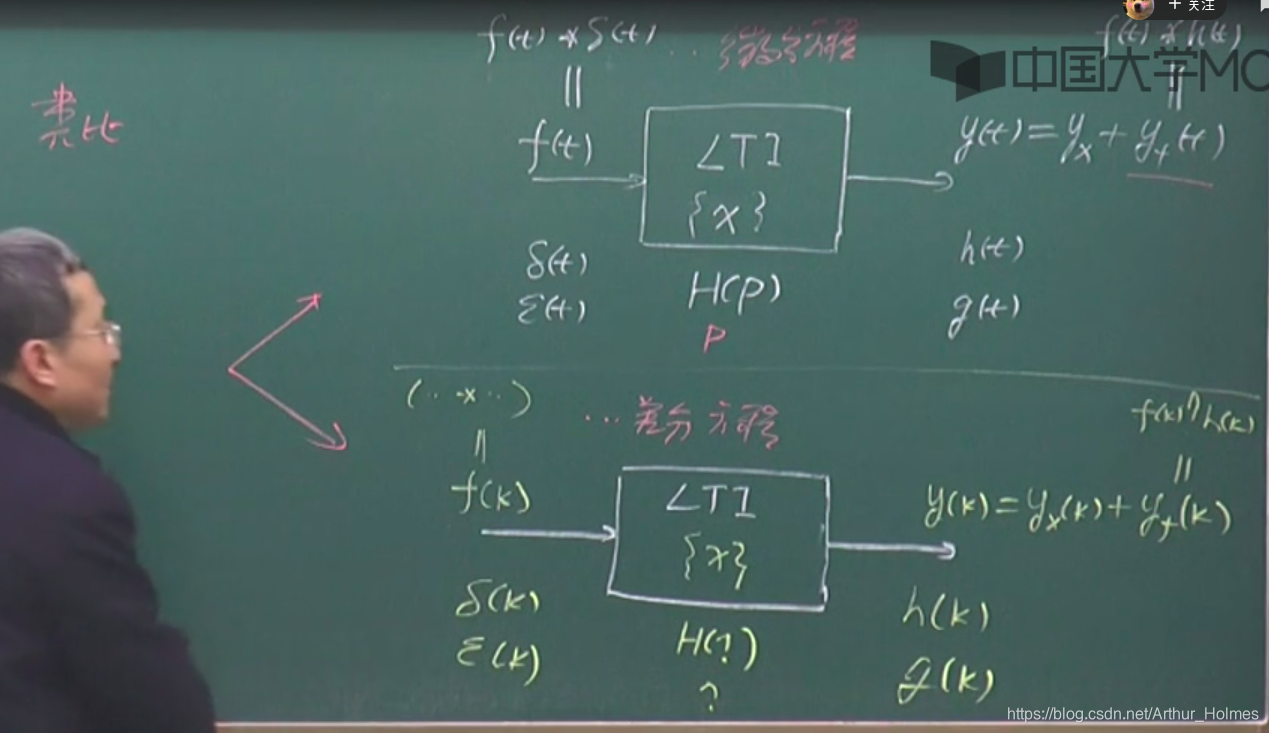 十 关注
f(t) * δ(t) ··· 微分方程
f(t) * h(t)
中国大学MO
||
||
类比
f(t)
LTI
y(t) = y_x + y_f(t)
{x}
δ(t)
h(t)
ε(t)
H(p)
g(t)
p
(·· * ··)
··· 差分方程
f(k) ? h(k)
||
||
f(k)
LTI
y(k) = y_x(k) + y_f(k)
{x}
δ(k)
h(k)
ε(k)
H(?)
g(k)
?
https://blog.csdn.net/Arthur_Holmes